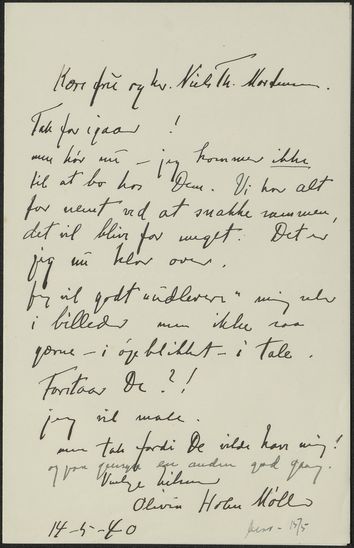 Kære frú og hr. Niels Th. Mortensen.
Tak for igaar !
men hør nú – jeg kommer ikke
til at bo hos Dem. Vi har alt
for nemt ved at snakke sammen,
det vil blive for meget. Det er
jeg nú klar over.
Jeg vil godt "udlevere" mig selv
i billeder men ikke saa
gærne – i øjeblikket – i tale.
Forstaar De ? !
jeg vil male.
men tak fordi De vilde have mig !
og paa gensyn en anden god gang.
Venlig hilsen
Olivia Holm Møller
14-5-40
15/5